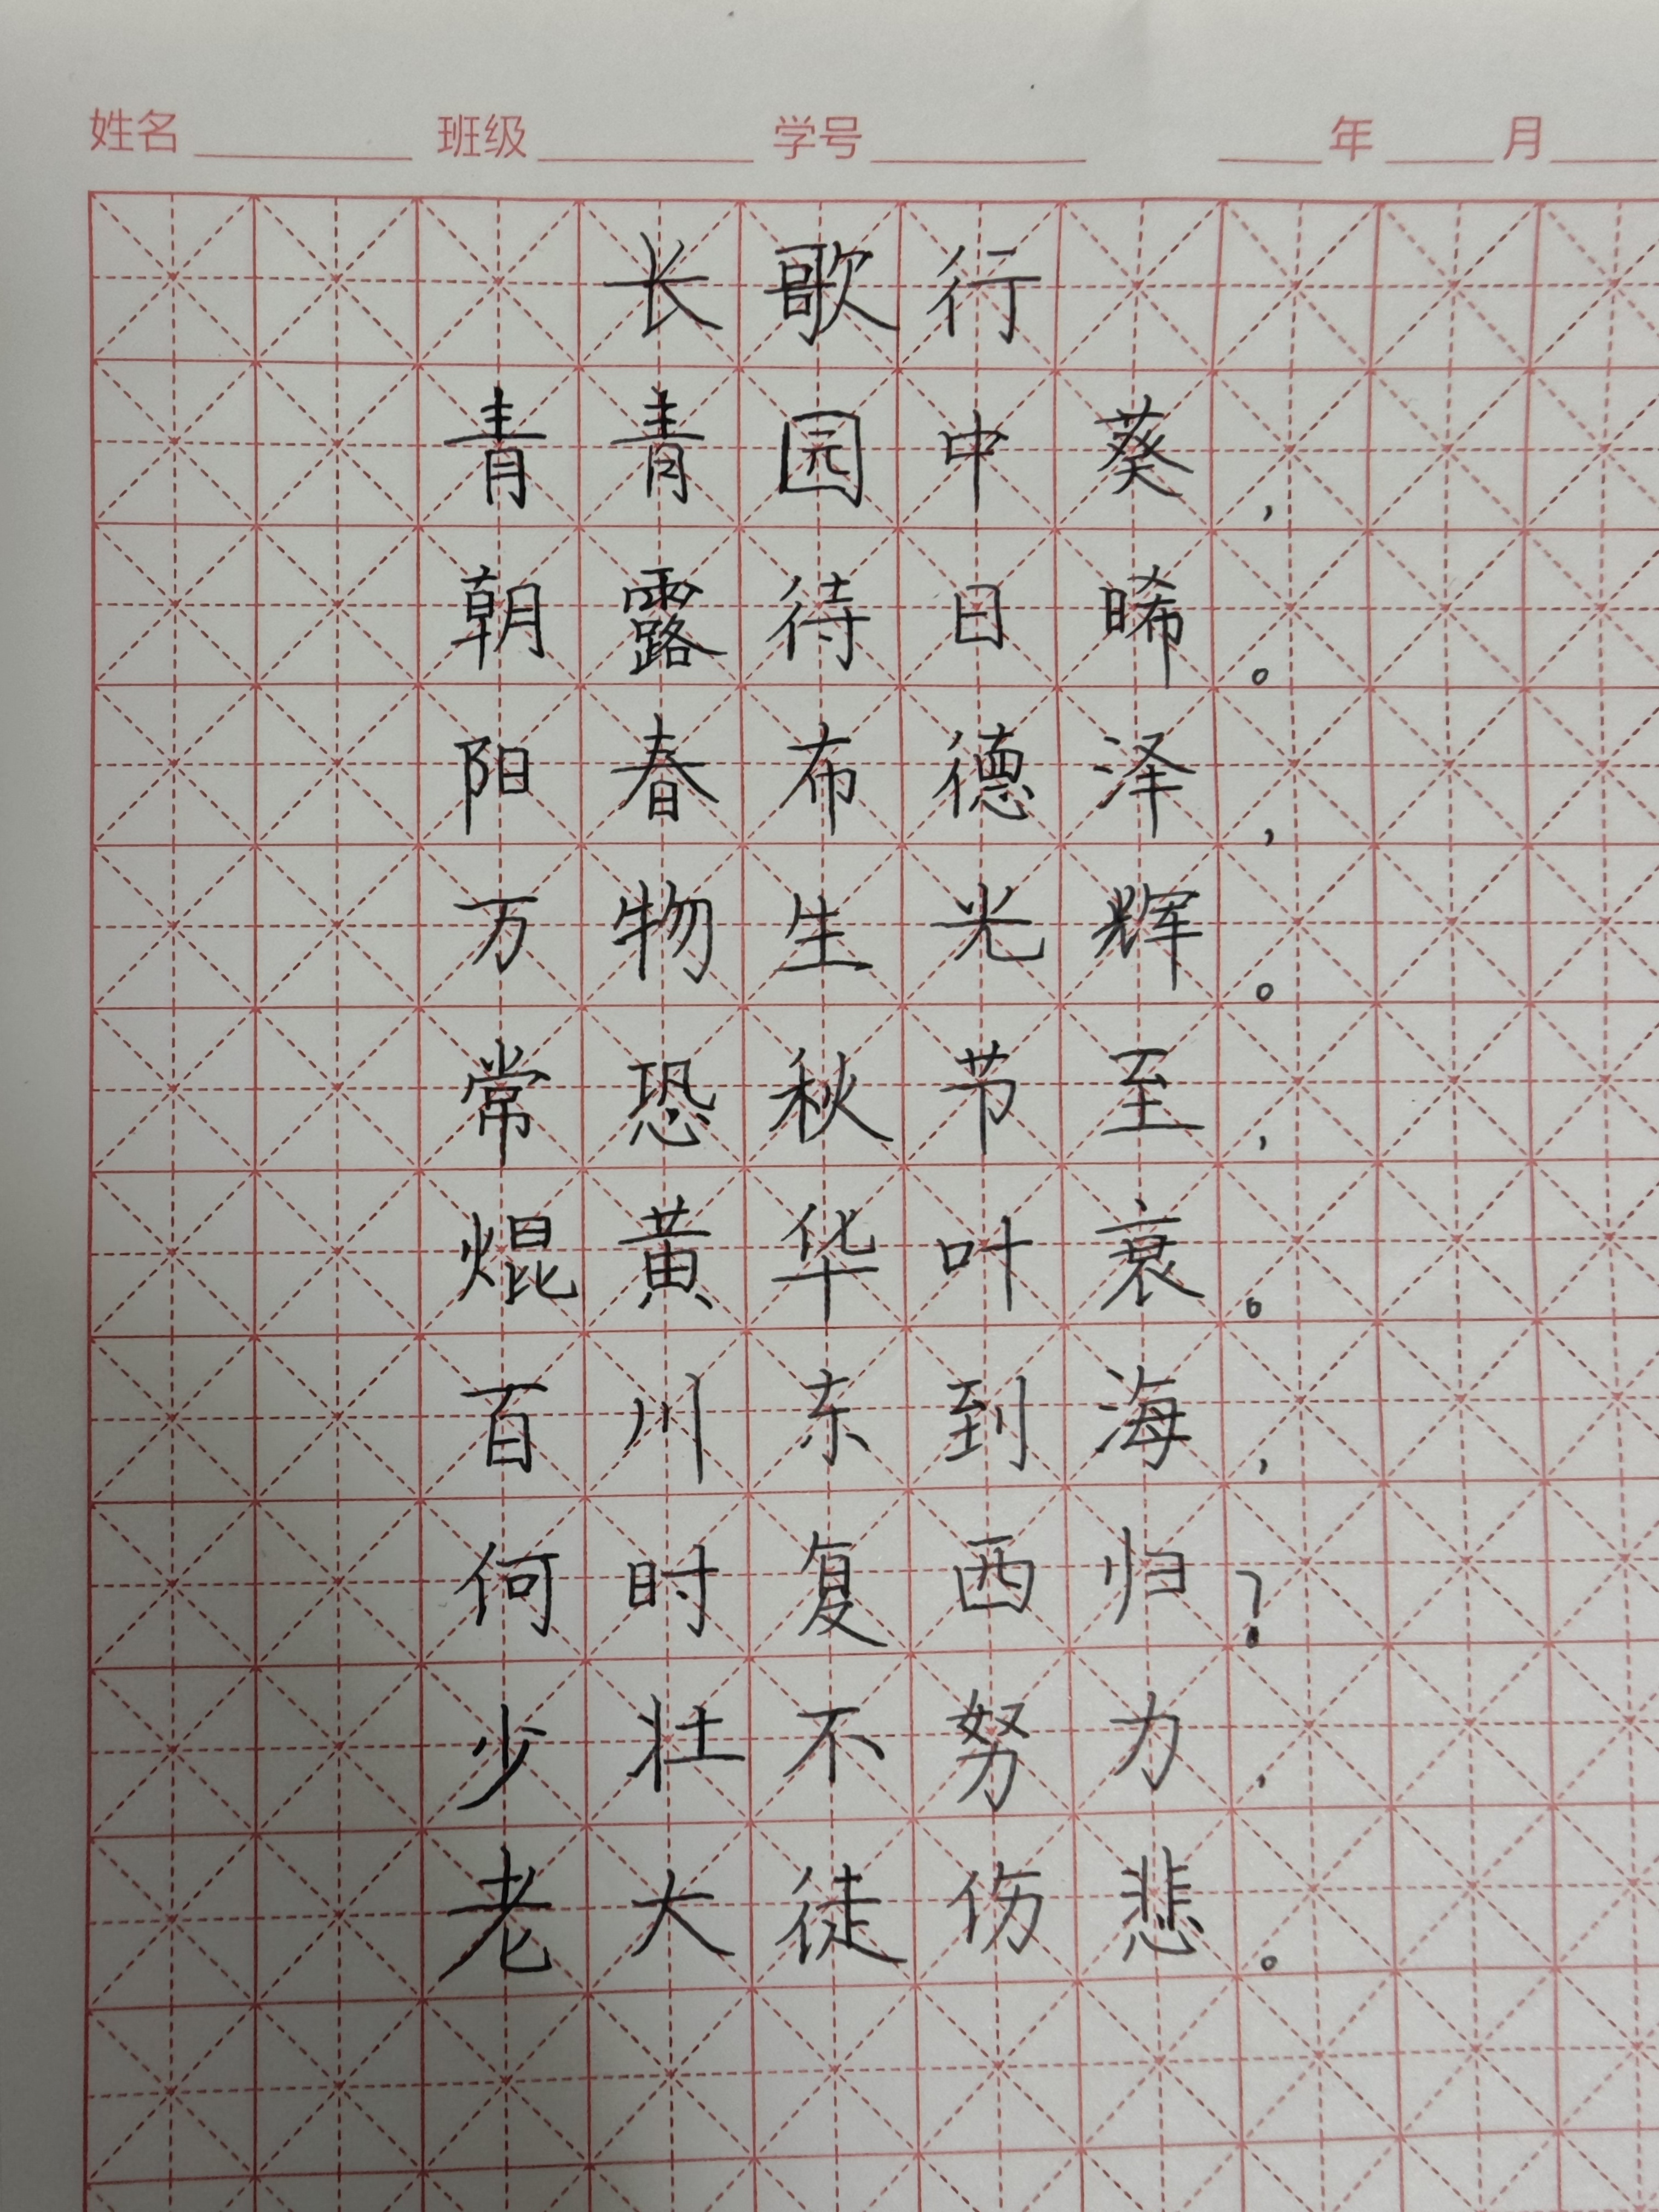 姓名 班级 学号 年 月
长歌行
青青园中葵，
朝露待日晞。
阳春布德泽，
万物生光辉。
常恐秋节至，
焜黄华叶衰。
百川东到海，
何时复西归？
少壮不努力，
老大徒伤悲。